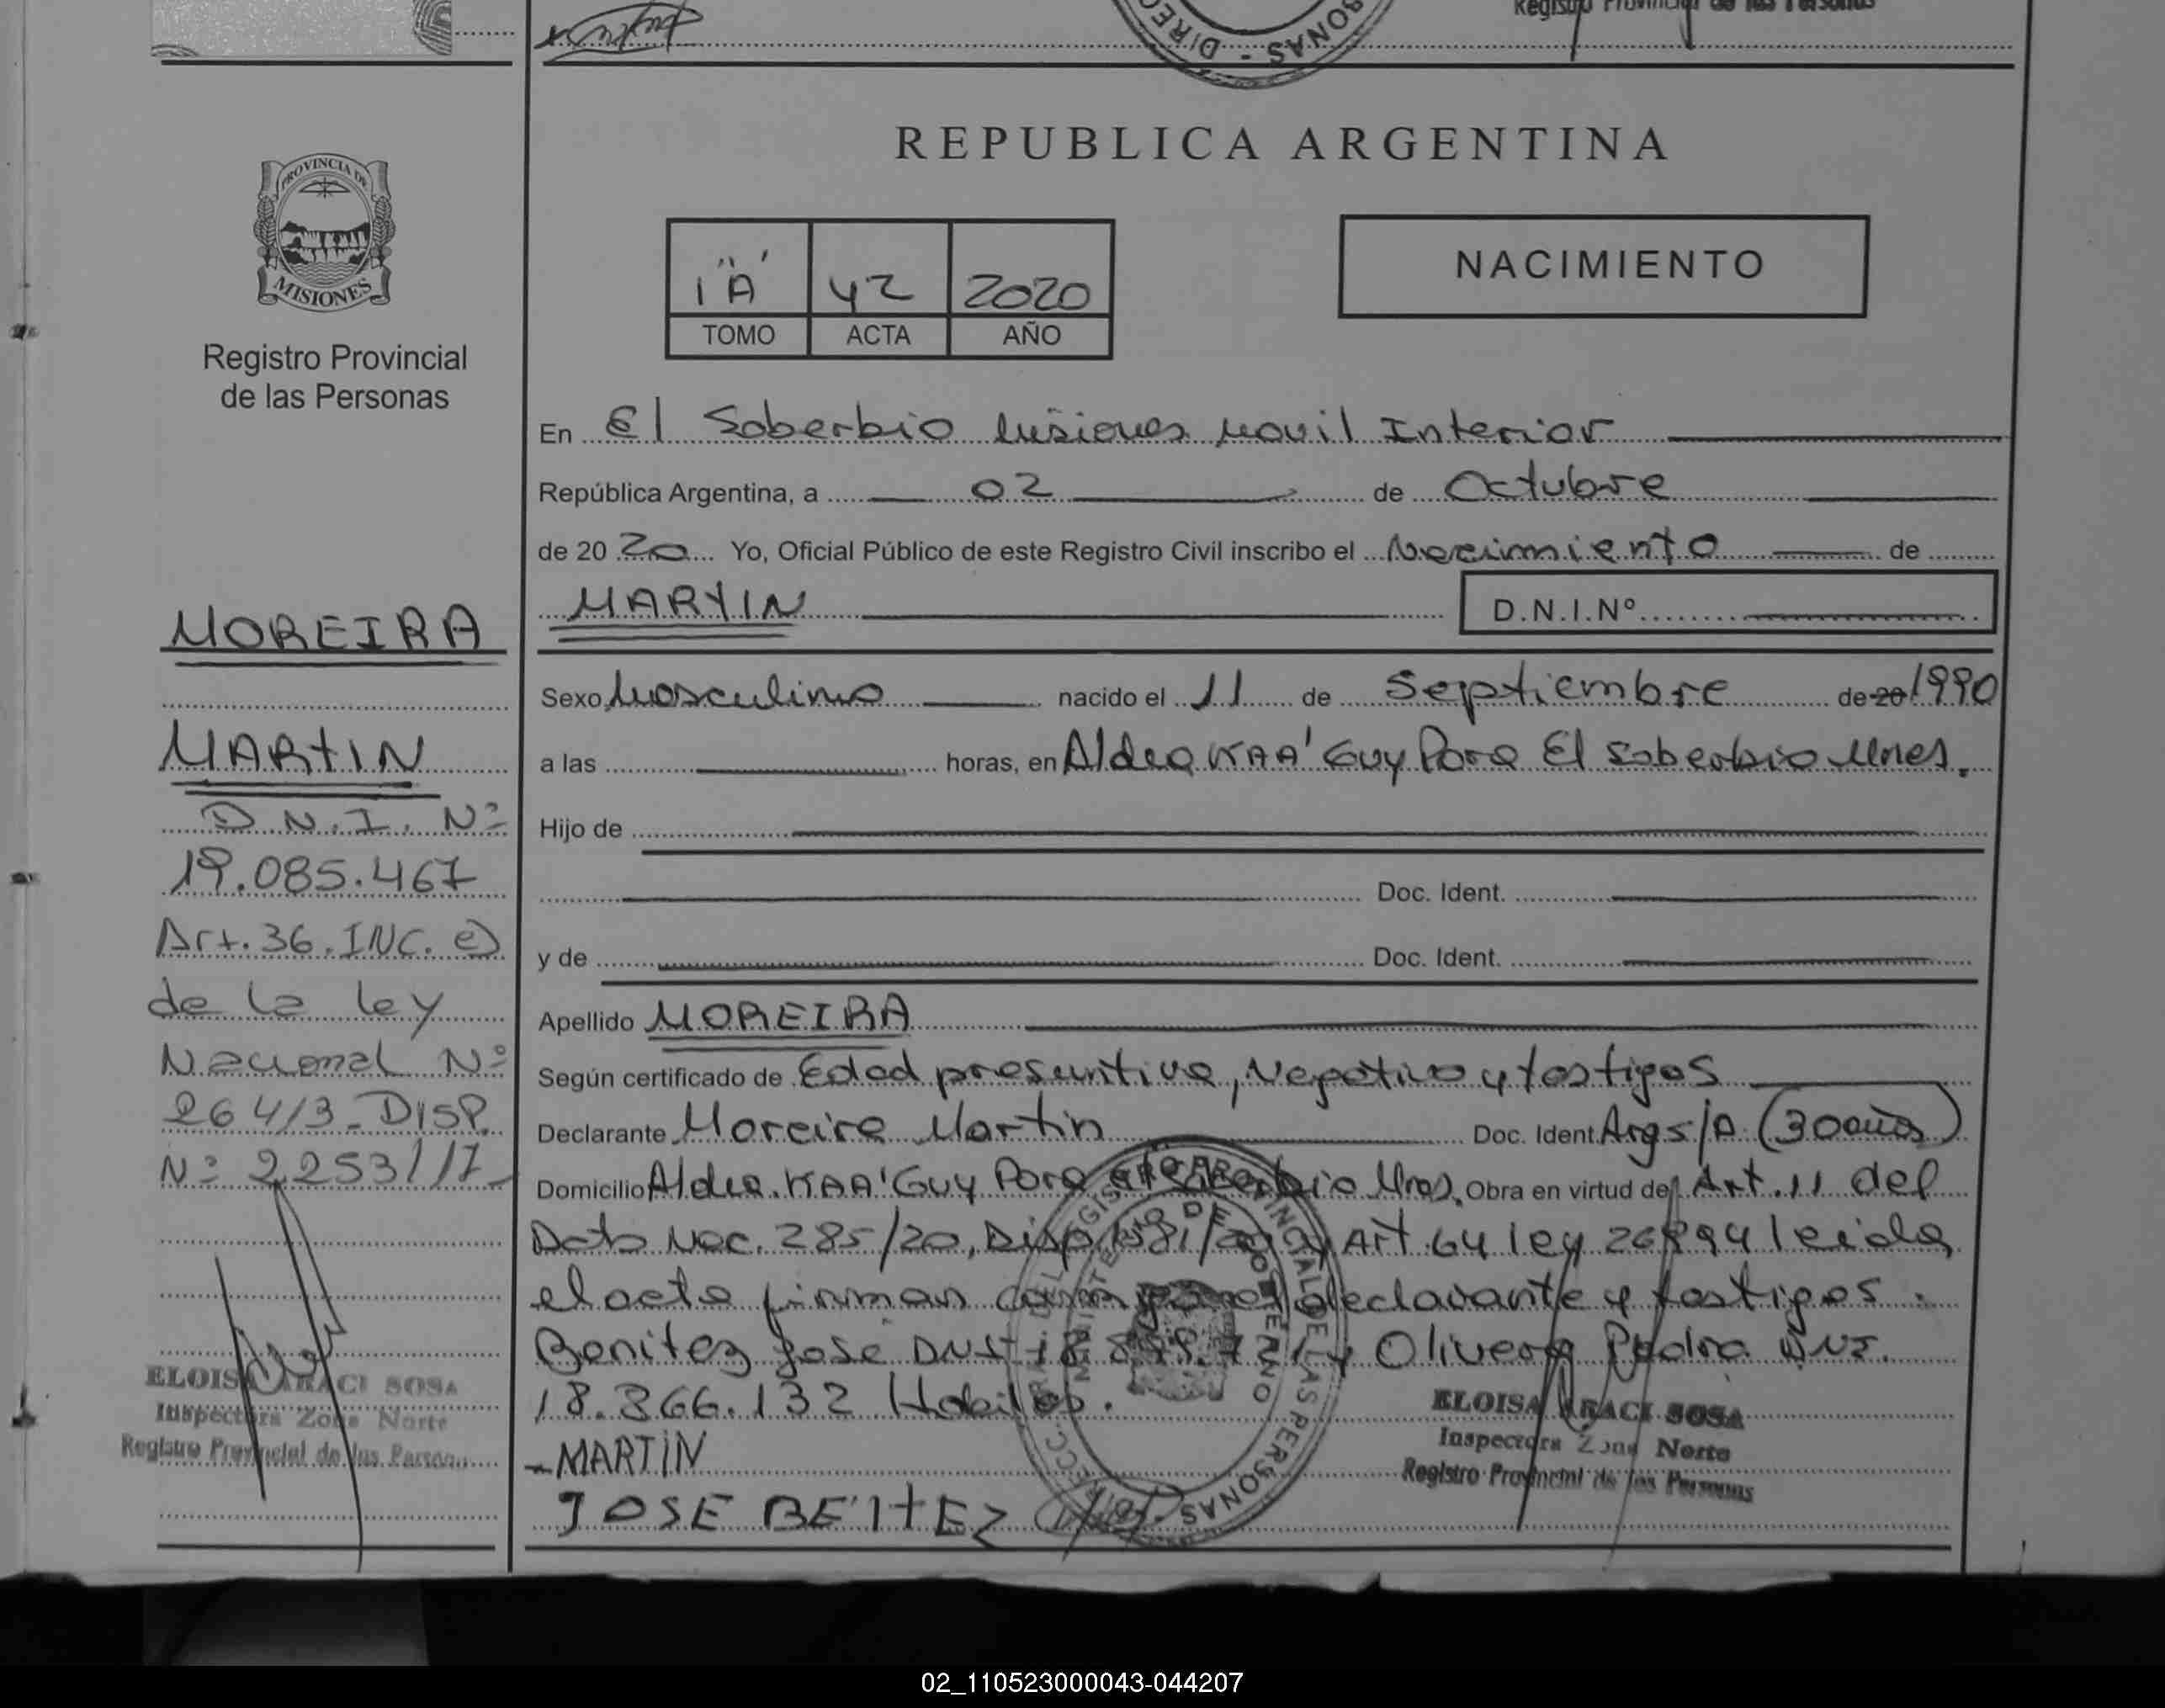 Registro Provincial de las Personas
DIREC
REPUBLICA ARGENTINA
PROVINCIA DE
MISIONES
Registro Provincial
de las Personas
1 "A" 42 2020
TOMO ACTA AÑO
NACIMIENTO
En El Soberbio Misiones Movil Interior
República Argentina, a 02 de Octubre
de 20 20 Yo, Oficial Público de este Registro Civil inscribo el Nacimiento de
MARTIN D.N.I.Nº
Sexo Masculino nacido el 11 de Septiembre de 20 1990
a las horas, en Aldea KAA' Guy Pora El Soberbio Mnes.
Hijo de
Doc. Ident.
y de Doc. Ident.
Apellido MOREIRA
Según certificado de Edad presuntiva, Negativo y testigos
Declarante Moreira Martin Doc. Ident. Arg s/A (30 años)
Domicilio Aldea KAA' Guy Pora El Soberbio Mnes. Obra en virtud del Art. 11 del
Dcto Nac. 285/20, Disp. Art 64 ley 26994 leida
el acta firman declarante y testigos.
Benitez José DNI y Olivera Pedro DNI.
18.366.132 Habiles.
- MARTIN
JOSE BEITEZ
ELOISA ARACI SOSA
Inspectora Zona Norte
Registro Provincial de las Personas
MOREIRA
MARTIN
D.N.I. Nº
19.085.467
Art. 36. INC. e)
de la ley
Nacional Nº
26413 - DISP.
Nº 2253/17
ELOISA ARACI SOSA
Inspectora Zona Norte
Registro Provincial de las Person
02_110523000043-044207